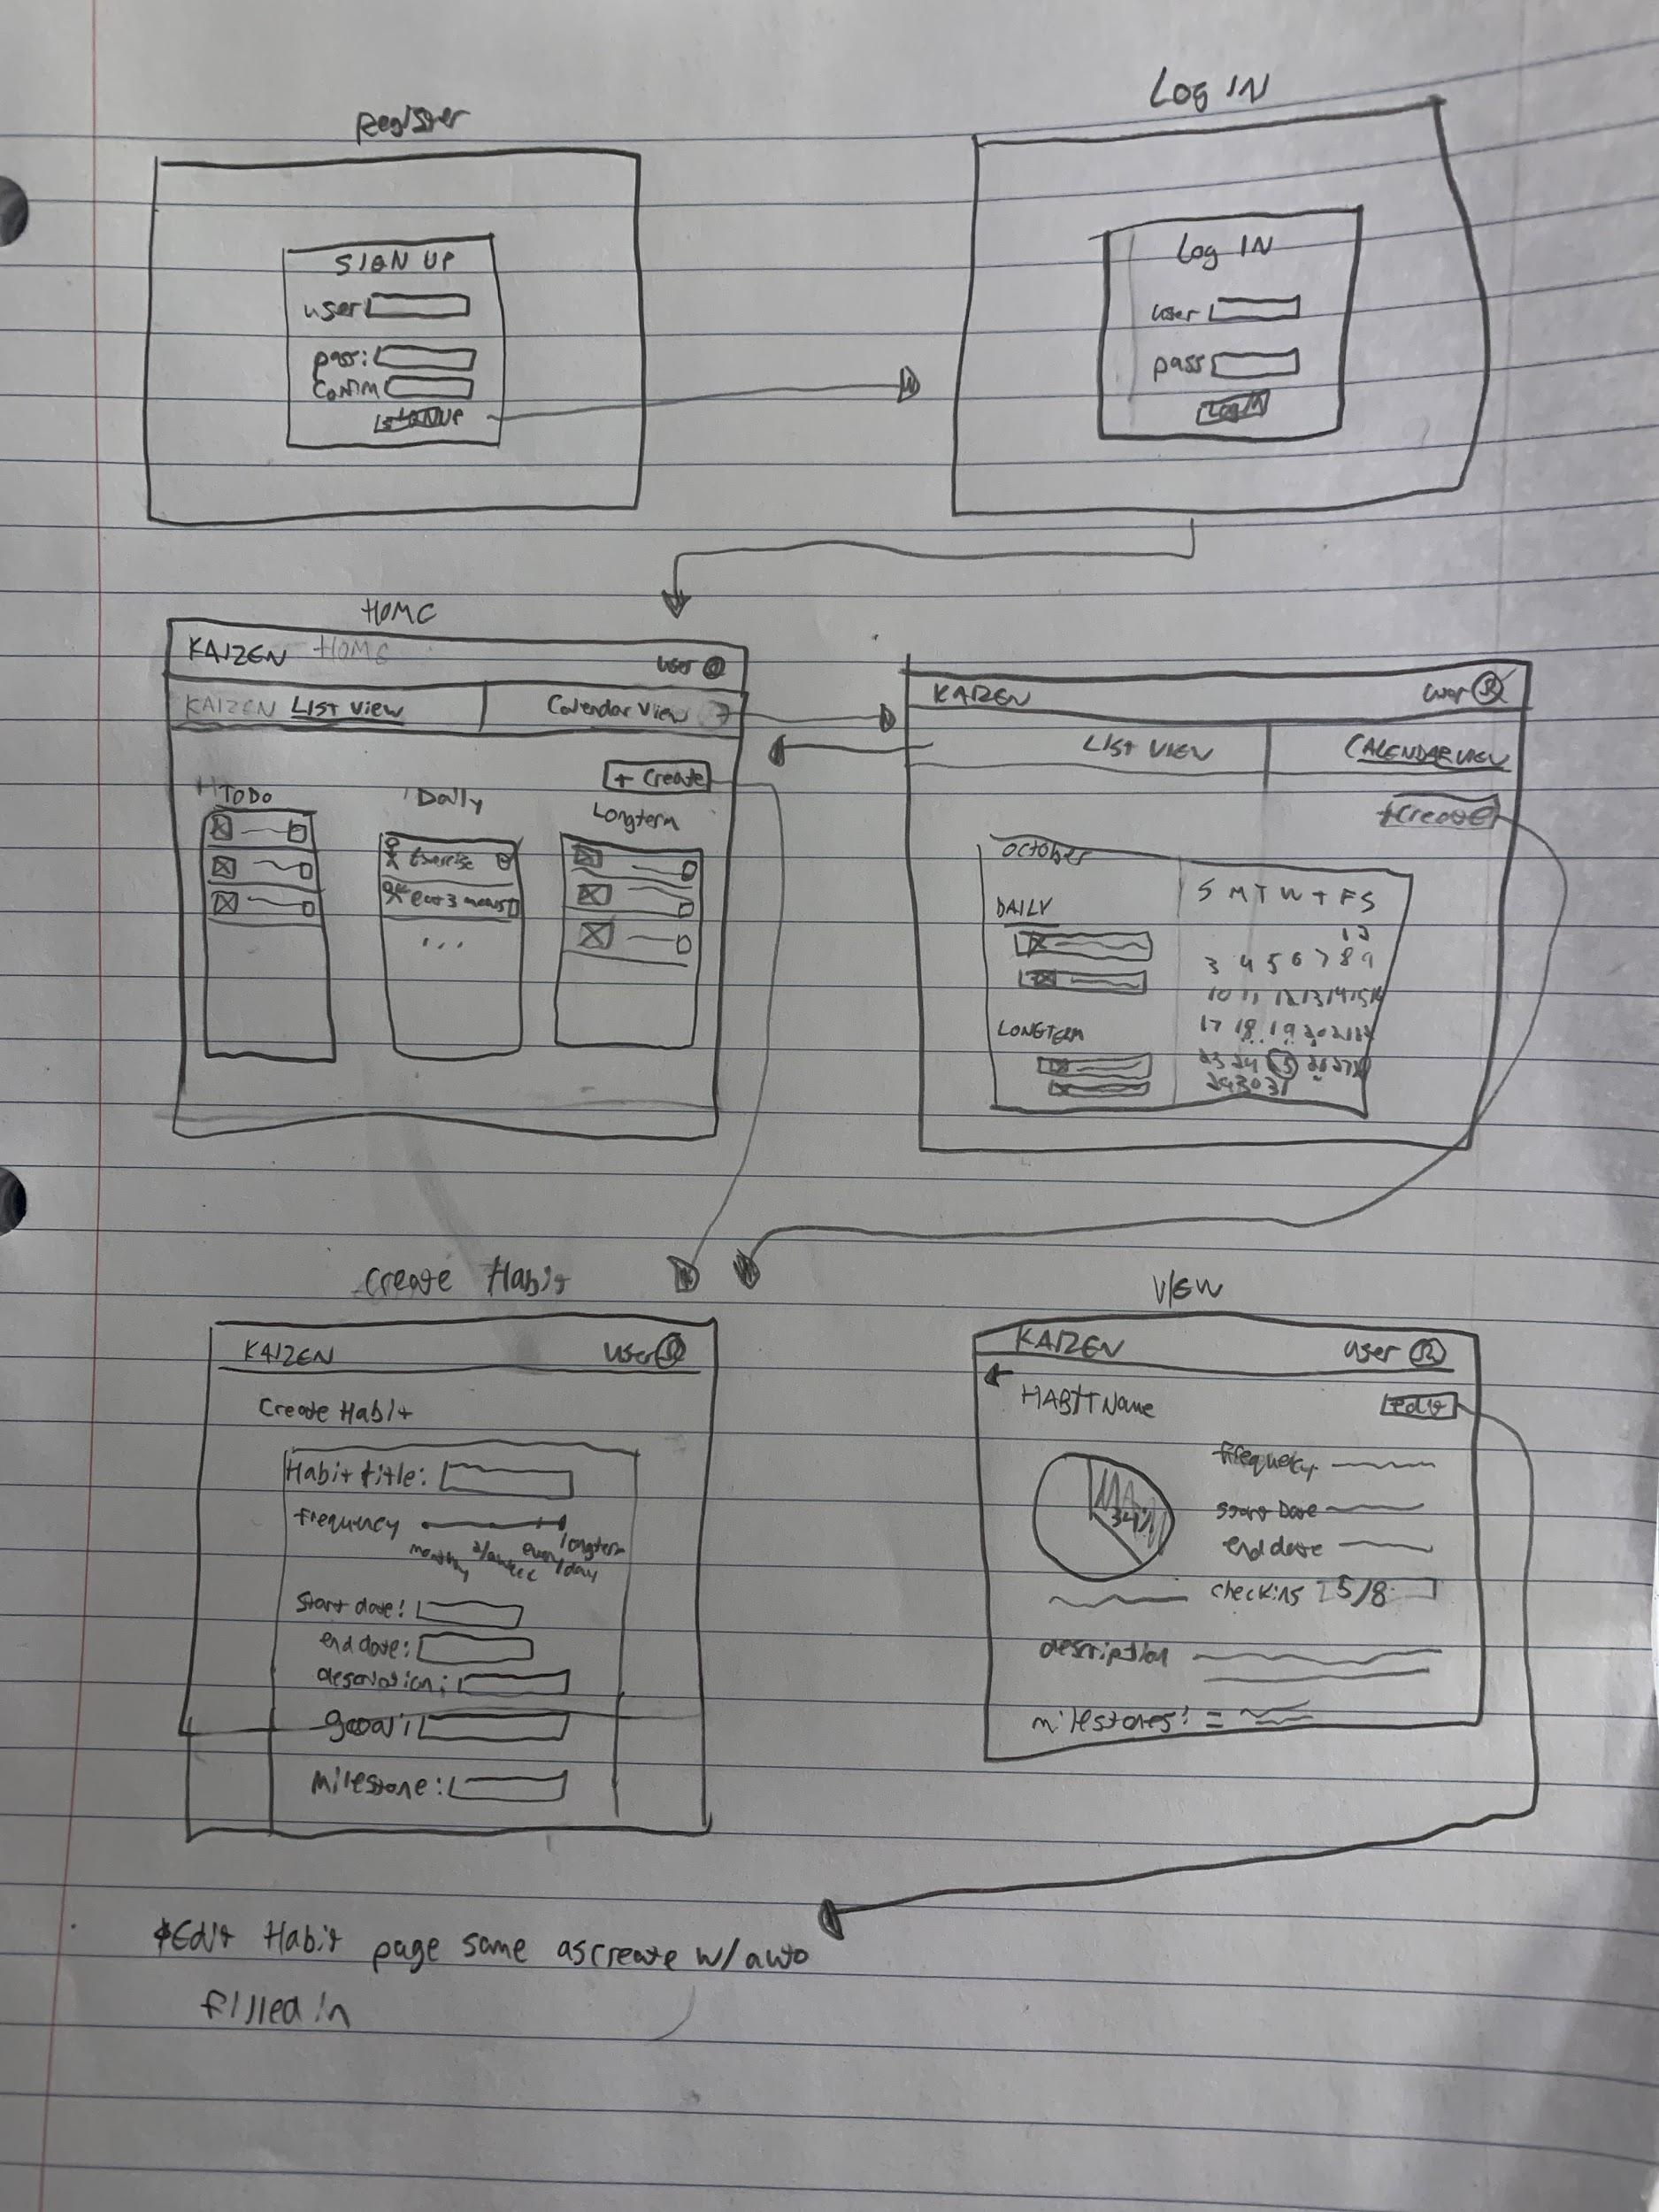 Register
Log IN
SIGN UP
user
pass:
confirm
SIGN UP
Log IN
user
pass
Log IN
HOME
KAIZEN HOME
user
KAIZEN LIST view
Calendar View
+ Create
TODO
Daily
Longterm
Exercise
eat 3 meals
...
KAIZEN
user
LIST VIEW
CALENDAR VIEW
+Create
October
S M T W T F S
DAILY
1 2
3 4 5 6 7 8 9
10 11 12 13 14 15 16
LONGTERM
17 18 19 20 21 22
23 24 25 26 27 28
29 30 31
Create Habit
KAIZEN
user
Create Habit
Habit title:
frequency
monthly
longterm
start date:
end date:
description:
goal:
milestone:
VIEW
KAIZEN
user
HABIT Name
edit
34%
frequency
start Date
end date
checkins 5/8
description
milestones:
*Edit Habit page same as create w/ auto
filled in